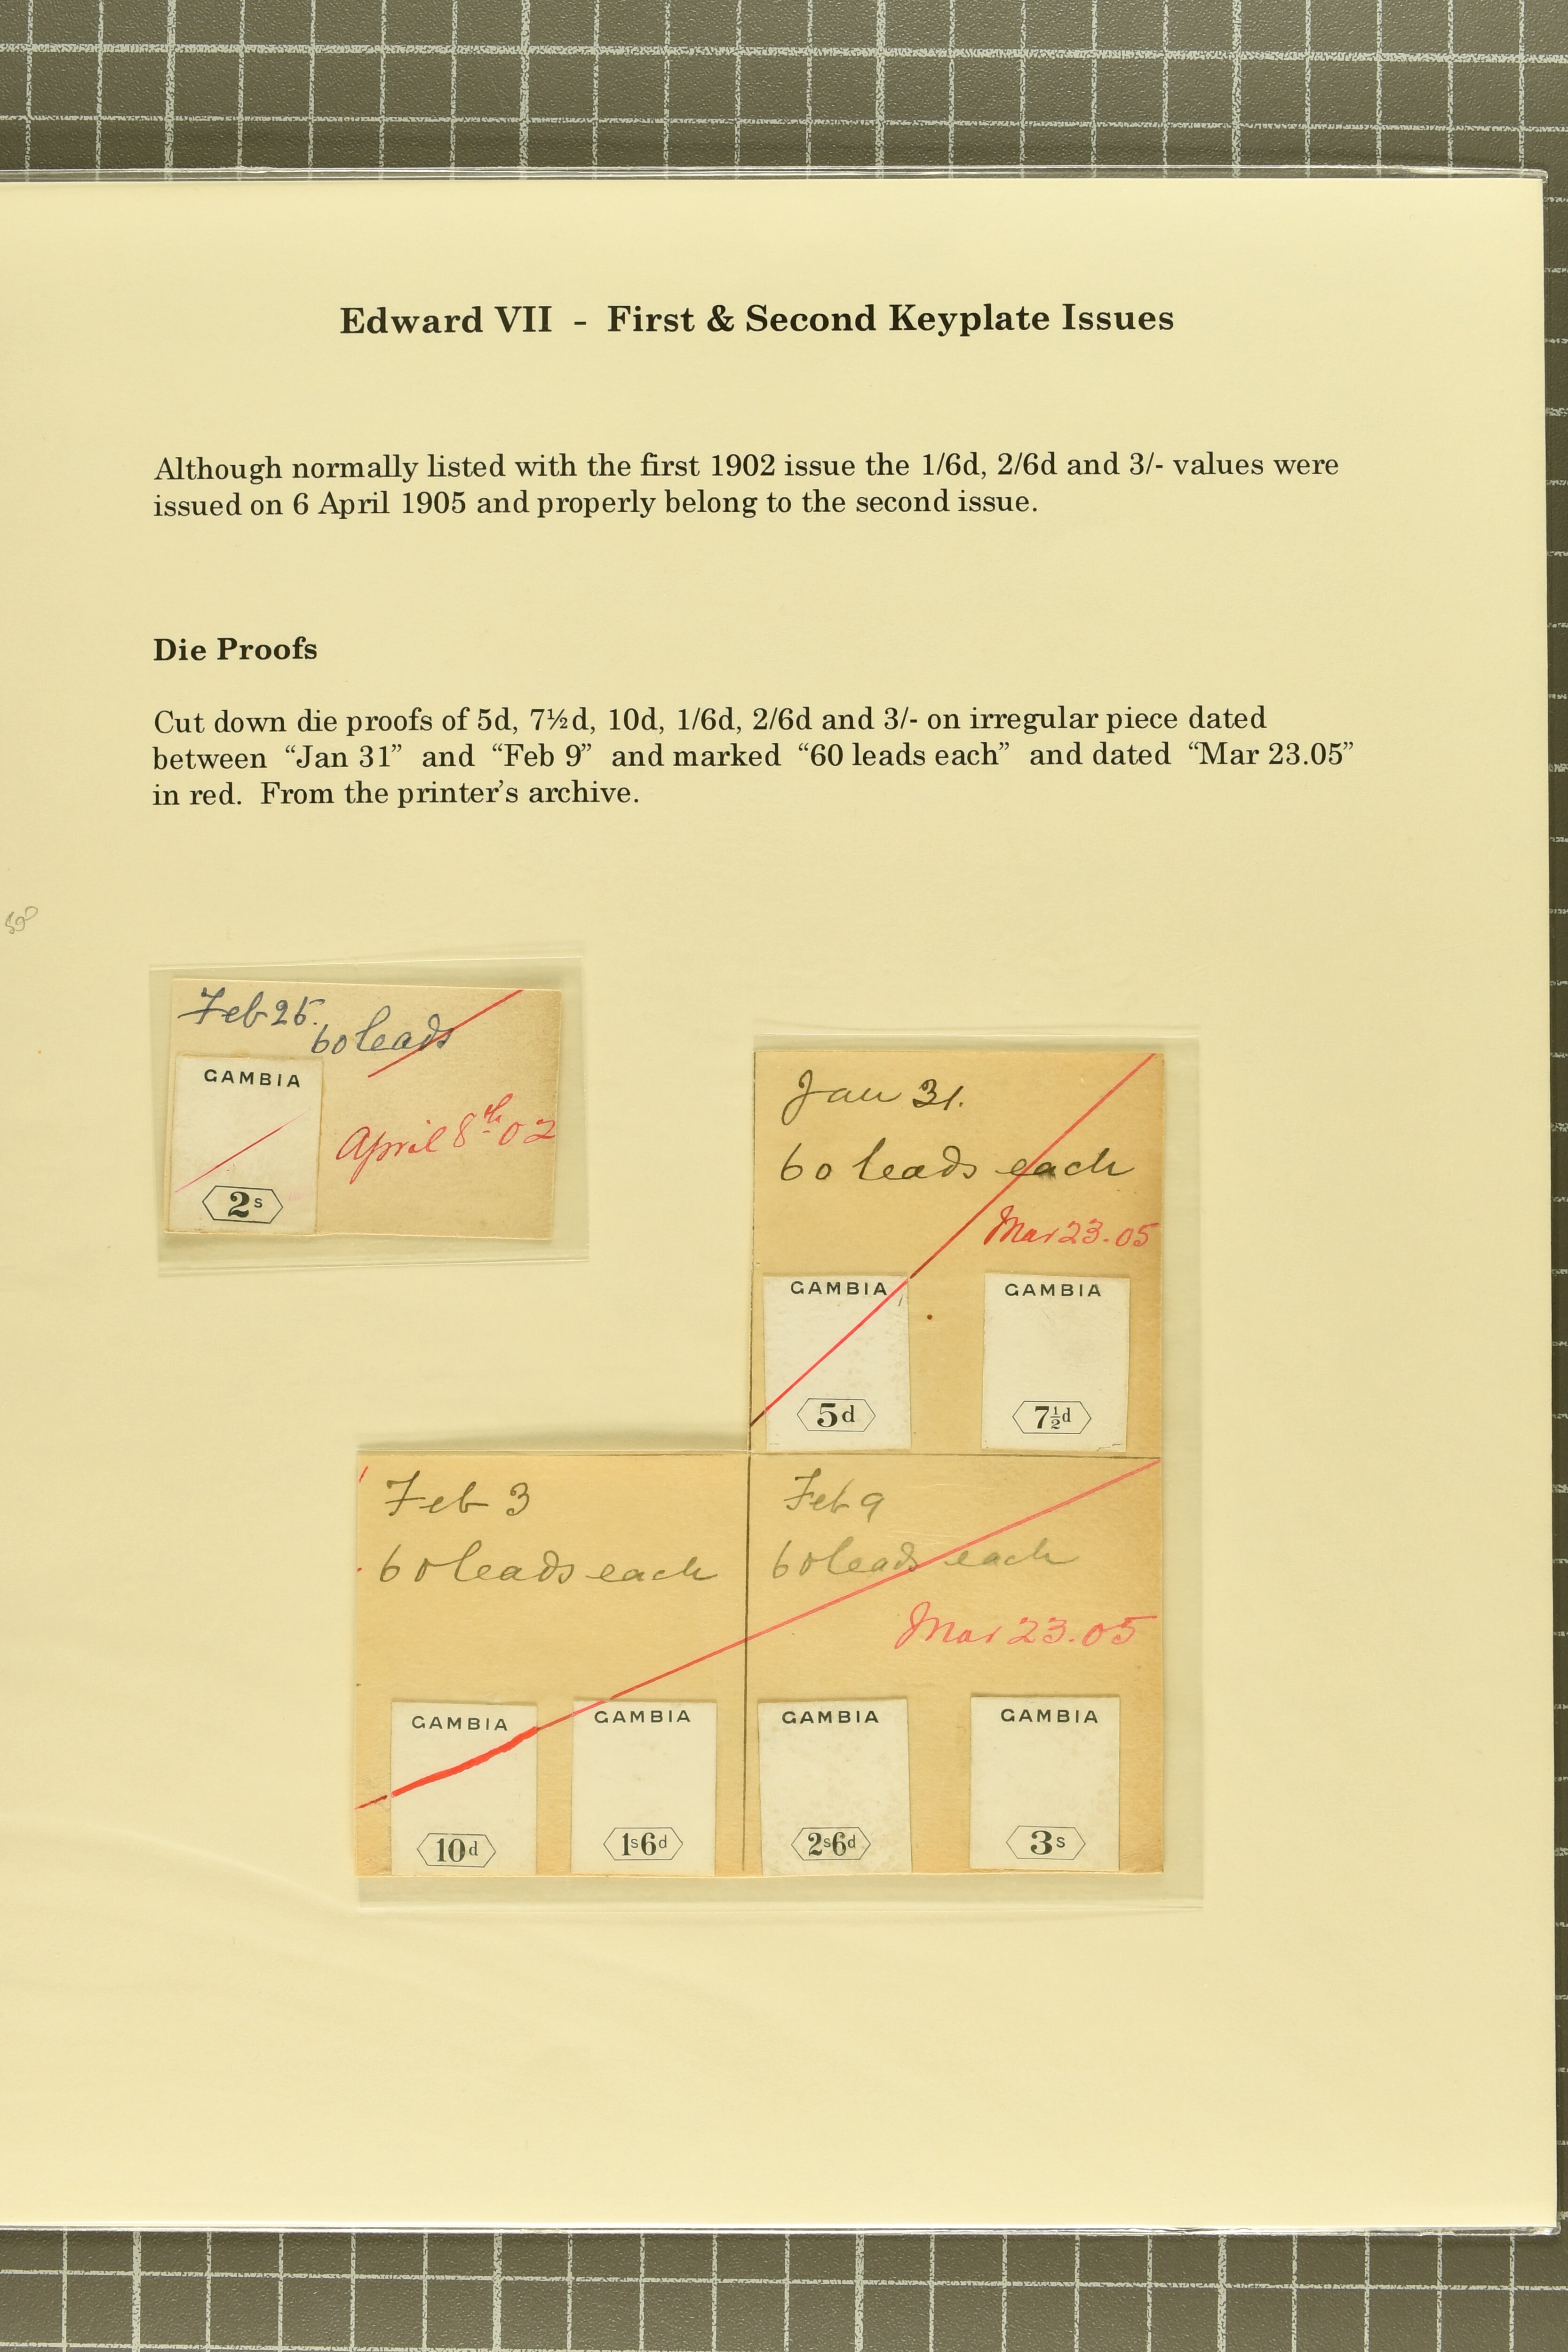 Edward VII - First & Second Keyplate Issues
Although normally listed with the first 1902 issue the 1/6d, 2/6d and 3/- values were
issued on 6 April 1905 and properly belong to the second issue.
Die Proofs
Cut down die proofs of 5d, 7½d, 10d, 1/6d, 2/6d and 3/- on irregular piece dated
between “Jan 31” and “Feb 9” and marked “60 leads each” and dated “Mar 23.05”
in red. From the printer’s archive.
Feb 25.
60 leads
GAMBIA
April 8th 02
2s
Jan 31.
60 leads each
Mar 23.05
GAMBIA
GAMBIA
5d
7½d
Feb 3
60 leads each
Feb 9
60 leads each
Mar 23.05
GAMBIA
GAMBIA
GAMBIA
GAMBIA
10d
1s6d
2s6d
3s